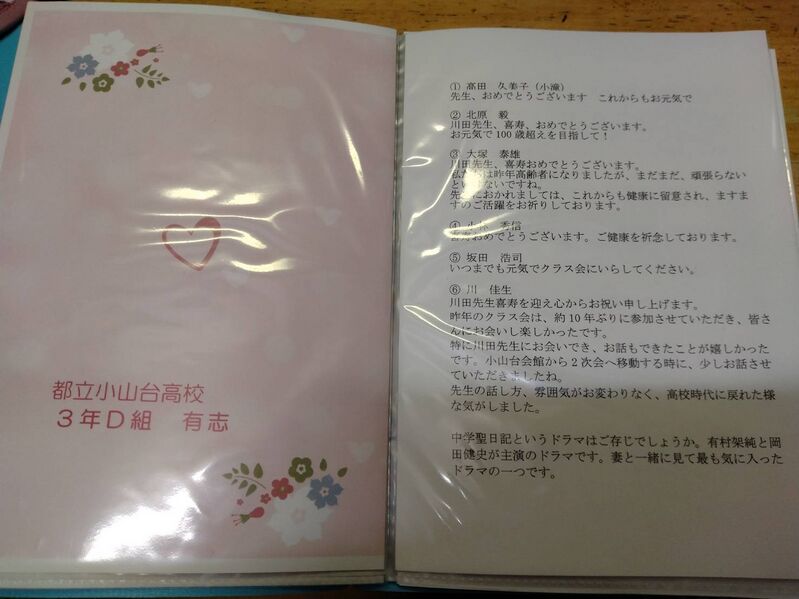 都立小山台高校
3年D組　有志
① 高田　久美子（小濵）
先生、おめでとうございます　これからもお元気で
② 北原　毅
川田先生、喜寿、おめでとうございます。
お元気で100歳超えを目指して！
③ 大塚　泰雄
川田先生、喜寿おめでとうございます。
私たちは昨年高齢者になりましたが、まだまだ、頑張らない
といけないですね。
先生におかれましては、これからも健康に留意され、ますま
すのご活躍をお祈りしております。
④ 秀信
喜寿おめでとうございます。ご健康を祈念しております。
⑤ 坂田　浩司
いつまでも元気でクラス会にいらしてください。
⑥ 川　佳生
川田先生喜寿を迎え心からお祝い申し上げます。
昨年のクラス会は、約10年ぶりに参加させていただき、皆さ
んにお会いし楽しかったです。
特に川田先生にお会いでき、お話もできたことが嬉しかった
です。小山台会館から2次会へ移動する時に、少しお話させ
ていただきましたね。
先生の話し方、雰囲気がお変わりなく、高校時代に戻れた様
な気がしました。
中学聖日記というドラマはご存じでしょうか。有村架純と岡
田健史が主演のドラマです。妻と一緒に見て最も気に入った
ドラマの一つです。